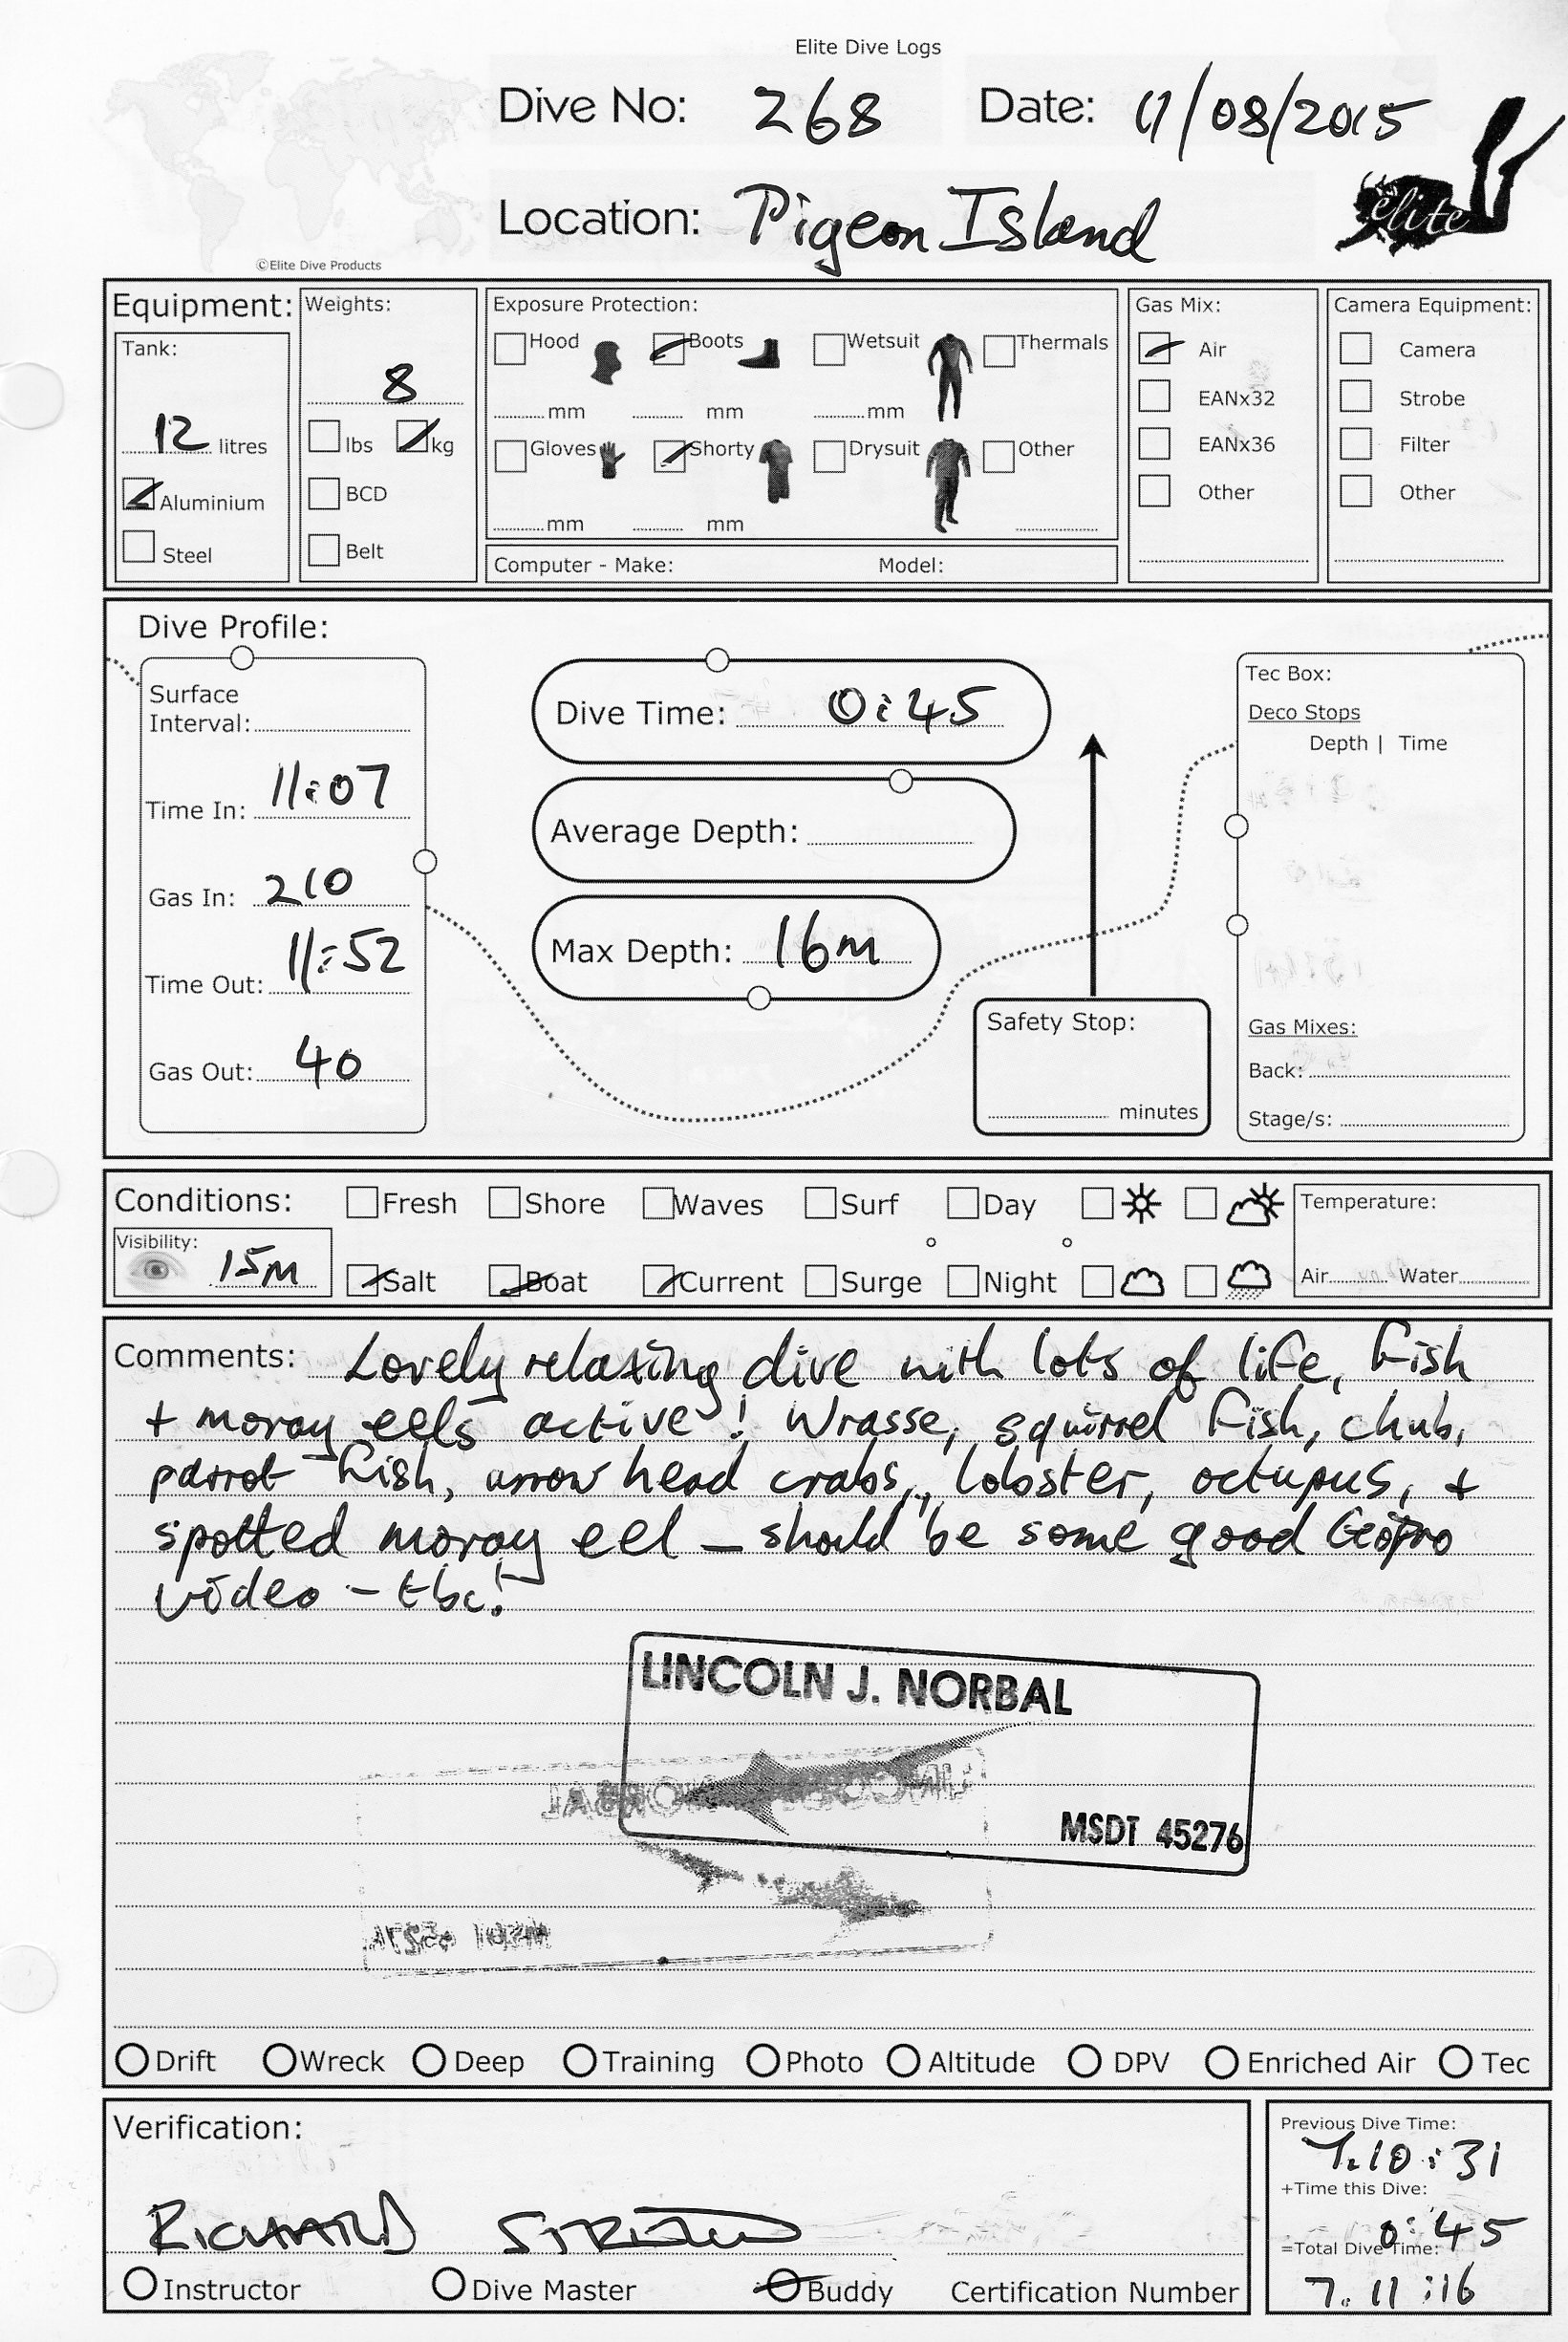 Elite Dive Logs
Dive No: 268 Date: 11/08/2015
Location: Pigeon Island
elite
©Elite Dive Products
Equipment:
Tank:
12 litres
Aluminium
Steel
Weights:
8
lbs kg
BCD
Belt
Exposure Protection:
Hood Boots Wetsuit Thermals
mm mm mm
Gloves Shorty Drysuit Other
mm mm
Computer - Make: Model:
Gas Mix:
Air
EANx32
EANx36
Other
Camera Equipment:
Camera
Strobe
Filter
Other
Dive Profile:
Surface
Interval:
Time In: 11:07
Gas In: 210
Time Out: 11:52
Gas Out: 40
Dive Time: 0:45
Average Depth:
Max Depth: 16m
Safety Stop:
minutes
Tec Box:
Deco Stops
Depth | Time
Gas Mixes:
Back:
Stage/s:
Conditions: Fresh Shore Waves Surf Day
Visibility: 15m
Salt Boat Current Surge Night
Temperature:
Air Water
Comments: Lovely relaxing dive with lots of life, fish
+ moray eels active! Wrasse, squirrel fish, chub,
parrot fish, arrow head crabs, lobster, octupus, +
spotted moray eel - should be some good GoPro
video - tbc!
LINCOLN J. NORBAL
MSDT 45276
Drift Wreck Deep Training Photo Altitude DPV Enriched Air Tec
Verification:
RICHARD
Instructor Dive Master Buddy Certification Number
Previous Dive Time:
7.10:31
+Time this Dive:
0:45
=Total Dive Time:
7.11:16